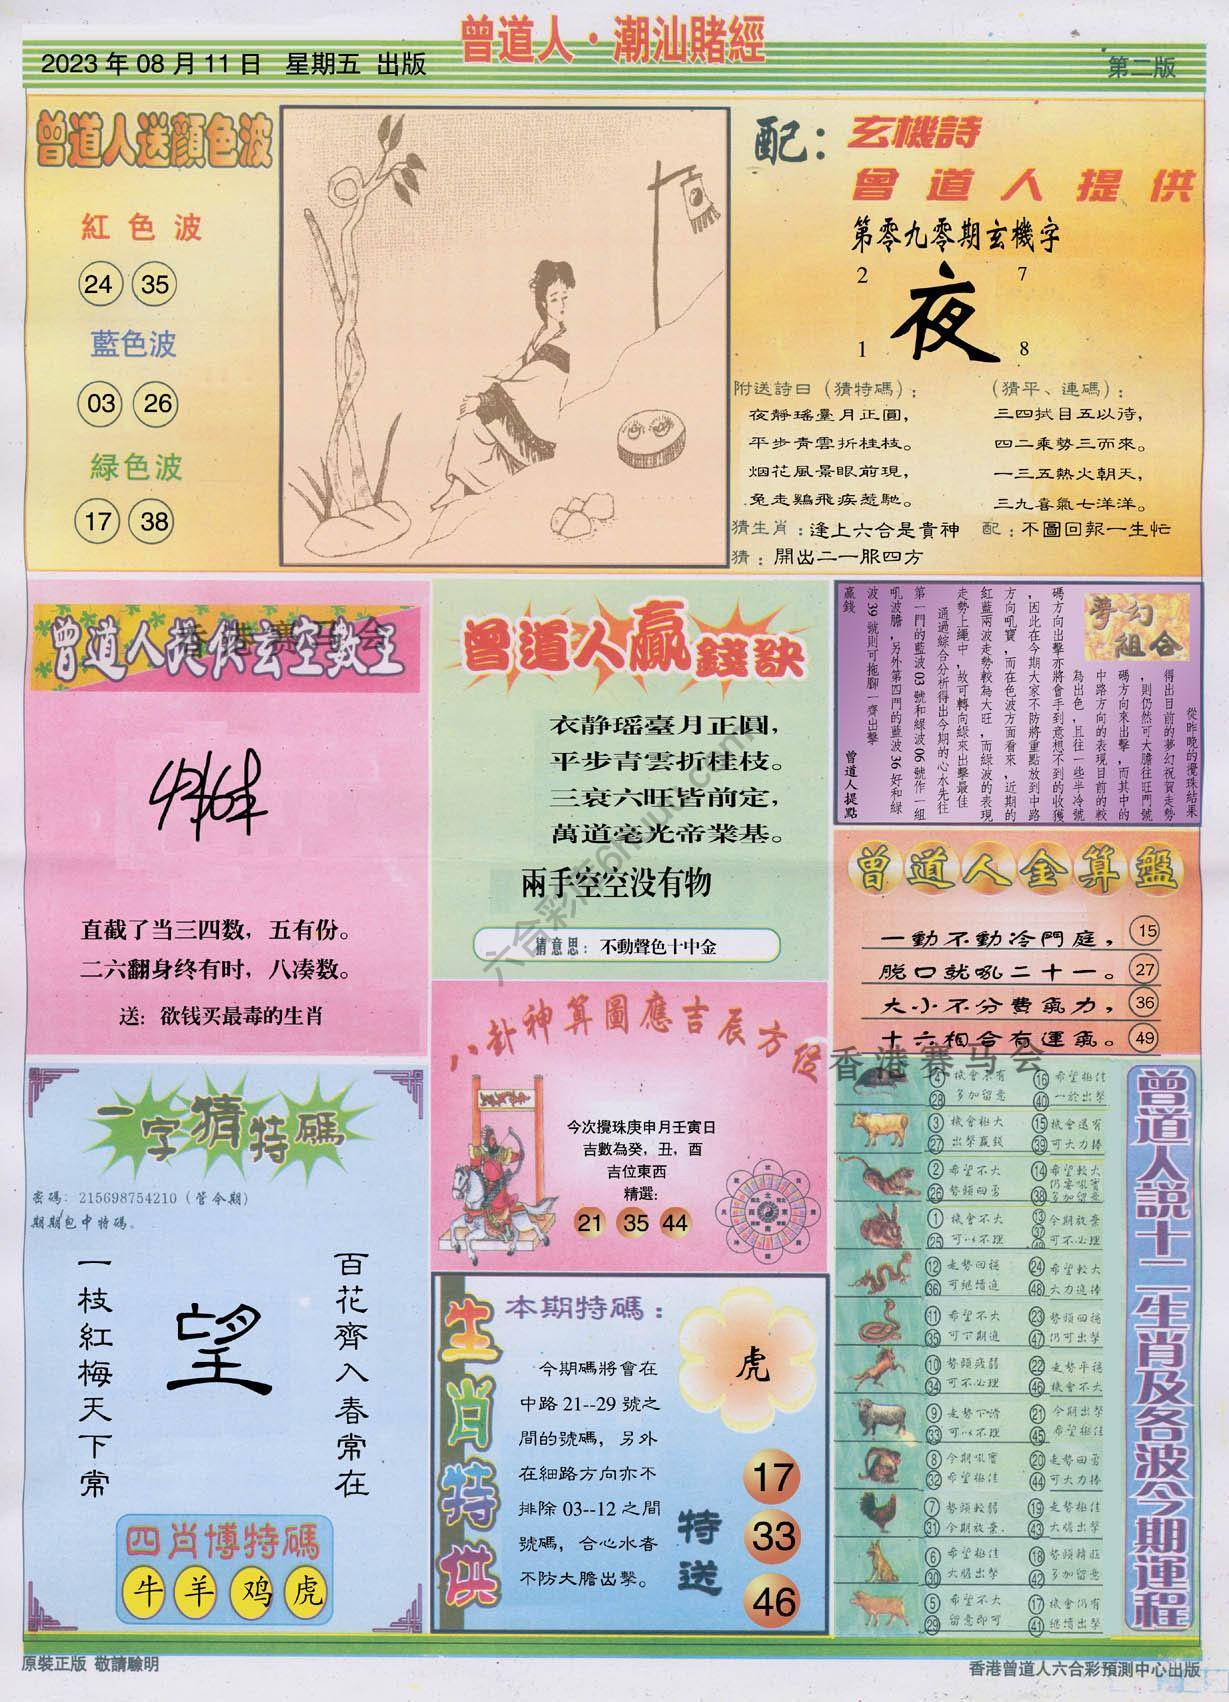 曾道人·潮汕賭經
2023 年 08 月 11 日 星期五 出版
第二版
曾道人送顔色波
紅色波
24 35
藍色波
03 26
緑色波
17 38
配：玄機詩
曾道人提供
第零九零期玄機字
2 7
夜
1 8
附送詩曰（猜特碼）：
夜靜瑤臺月正圓，
平步青雲折桂枝。
烟花風景眼前現，
兔走鷄飛疾惹馳。
（猜平、連碼）：
三四拭目五以待，
四二乘勢三而來。
一三五熱火朝天，
三九喜氣七洋洋。
猜生肖：逢上六合是貴神
配：不圖回報一生忙
猜：開出二一服四方
曾道人提供玄空數王
香港赛马会
直截了当三四数，五有份。
二六翻身终有时，八凑数。
送：欲钱买最毒的生肖
曾道人贏錢訣
衣静瑶臺月正圓，
平步青雲折桂枝。
三衰六旺皆前定，
萬道毫光帝業基。
兩手空空没有物
猜意思：不動聲色十中金
夢幻組合
從昨晚的攪珠結果
得出目前的夢幻祝賀走勢
，則仍然可大膽往旺門號
碼方向來出擊，而其中的
中路方向的表現目前的較
為出色，且往一些半冷號
碼方向出擊亦將會手到意想不到的收獲
，因此在今期大家不防將重點放到中路
方向吼寶，而在色波方面看來，近期的
紅藍兩波走勢較為大旺，而綠波的表現
走勢上繩中，故可轉向綠來出擊最佳
通過綜合分析得出今期的心水先往
第一門的藍波 03 號和綠波 06 號作一組
吼波膽，另外第四門的藍波 36 好和綠
波 39 號則可拖腳一齊出擊
贏錢
曾道人提點
曾道人金算盤
一動不動冷門庭， 15
脫口就吼二十一。 27
大小不分費氣力， 36
十六相合有運氣。 49
香港赛马会
八卦神算圖應吉辰方位
今次攪珠庚申月壬寅日
吉數為癸，丑，酉
吉位東西
精選：
21 35 44
一字猜特碼
密碼：215698754210（管令期）
期期包中特碼。
百花齊入春常在
望
一枝紅梅天下常
四肖博特碼
牛 羊 鸡 虎
生肖特供
本期特碼：
虎
今期碼將會在
中路 21--29 號之
間的號碼，另外
在細路方向亦不
排除 03--12 之間
號碼，合心水者
不防大膽出擊。
特送
17
33
46
曾道人説十二生肖及各波今期運程
4 機會不有 16 希望極佳
28 多加留意 40 一於出擊
3 機會極大 15 機會還有
27 出擊贏錢 39 可大力捧
2 希望不大 14 希望較大
26 勢頭回勇 38 多加留意
1 機會不大 13 今期放棄
25 可以不理 37 可不必理
12 走勢回穩 24 希望較大
36 可繼續追 48 大力追捧
11 希望不大 23 勢頭回穩
35 可下期追 47 仍可出擊
10 勢頭疲弱 22 走勢平穩
34 可不必理 46 機會不大
9 走勢下滑 21 今期出擊
33 可以不理 45 希望極佳
8 今期吼寶 20 走勢回勇
32 希望極佳 44 可大力捧
7 勢頭較弱 19 走勢極佳
31 今期放棄. 43 大膽出擊
6 希望極佳 18 勢頭轉旺
30 大膽出擊 42 多加留意
5 希望不大 17 機會仍有
29 留意即可 41 繼續出擊
原裝正版 敬請驗明
香港曾道人六合彩預測中心出版